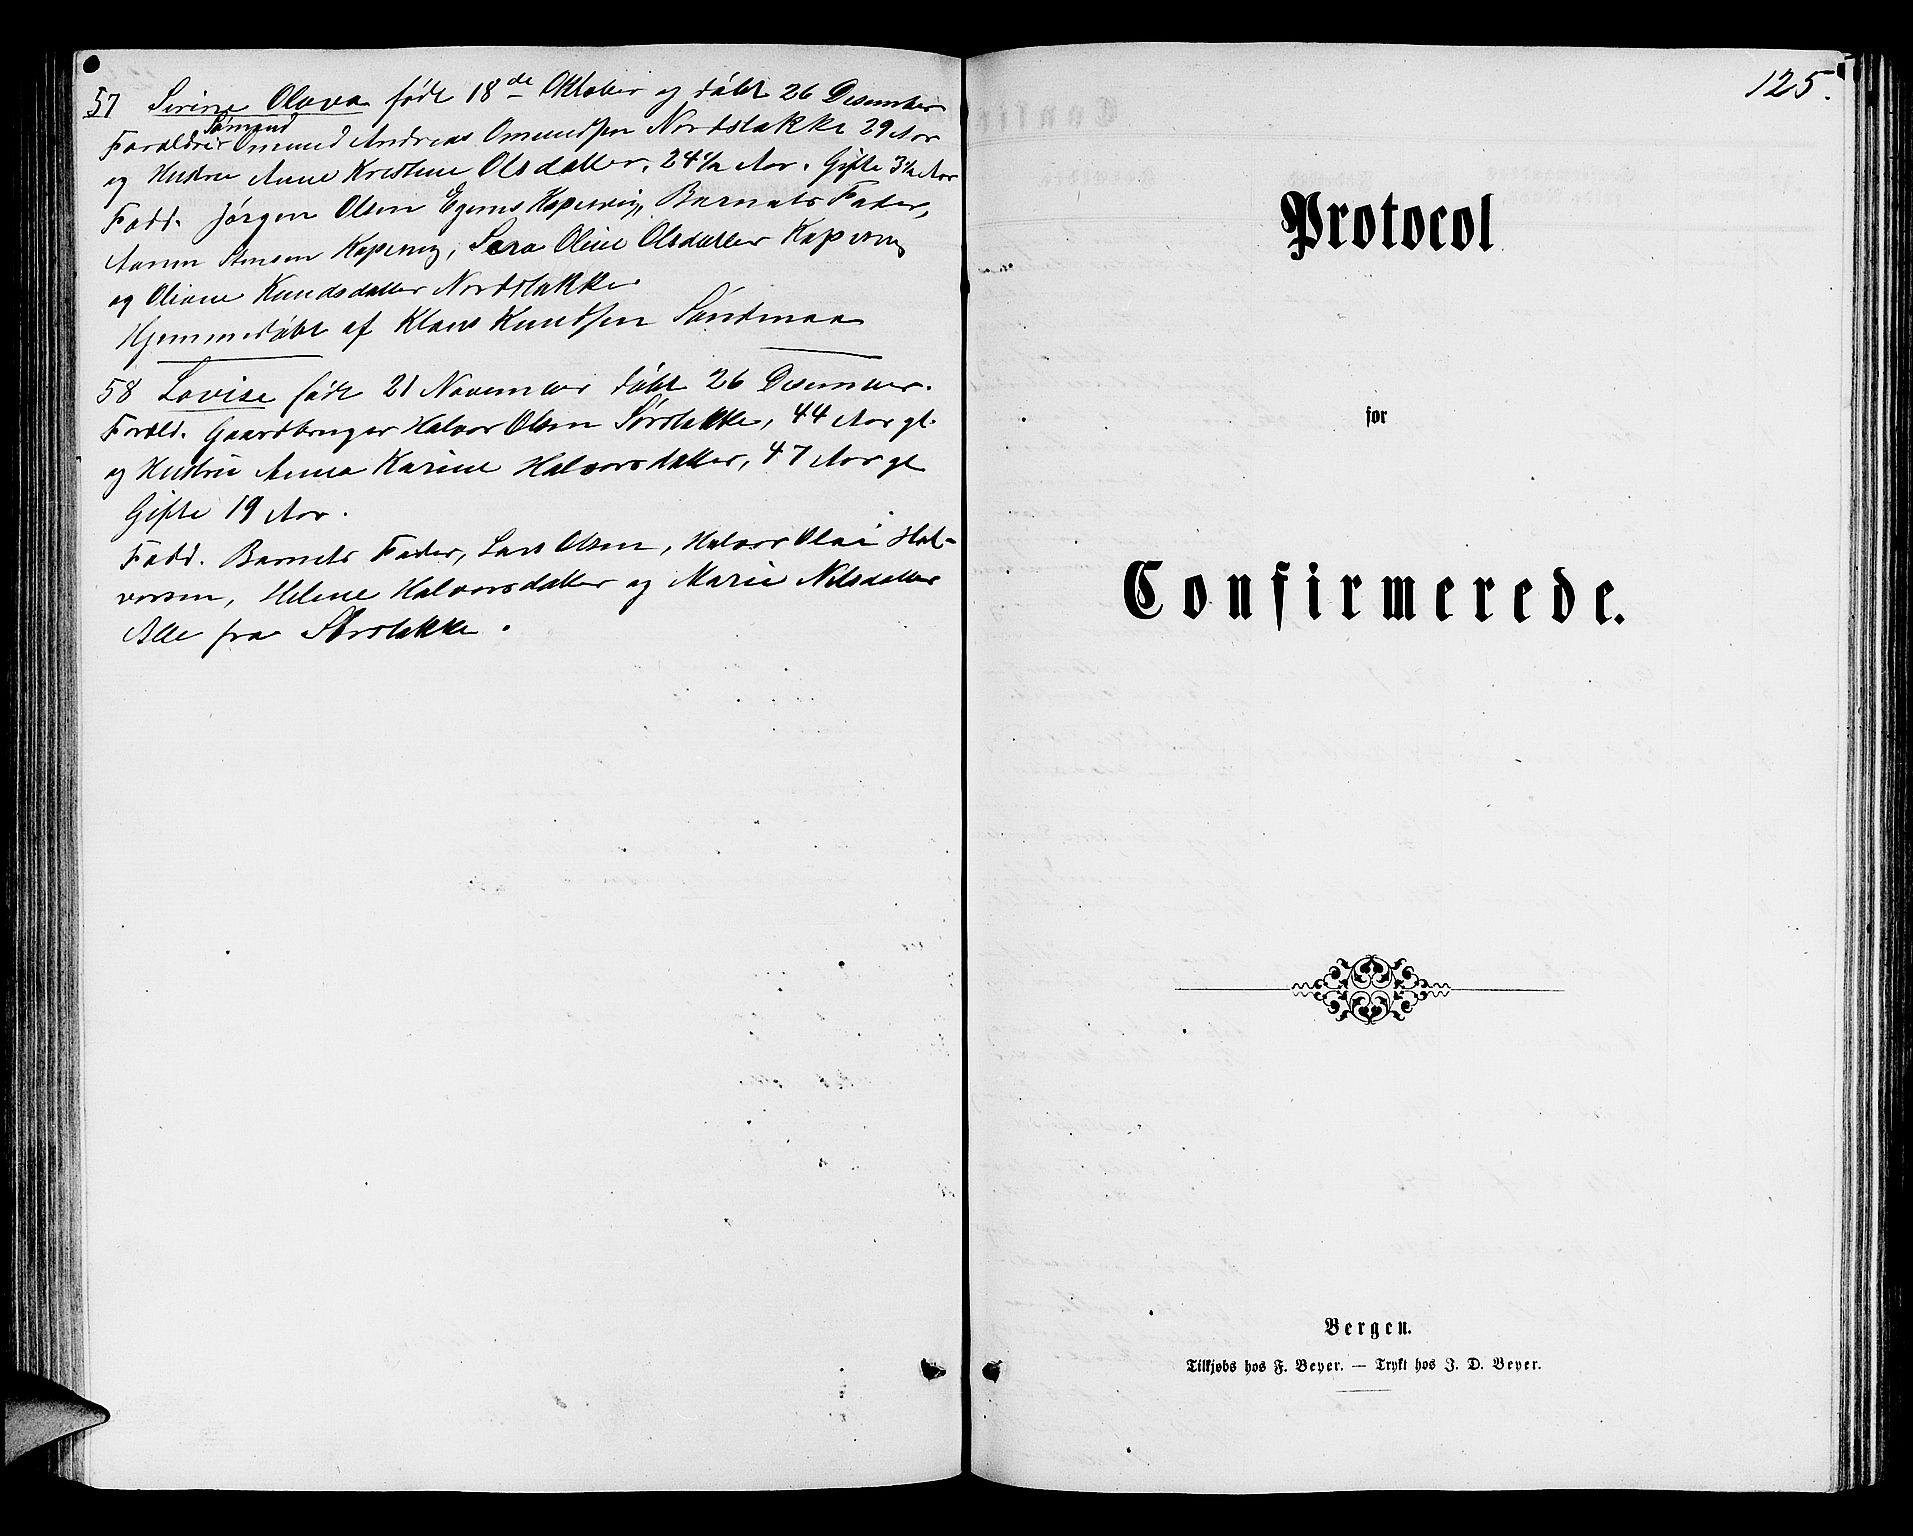 57 Serine Olava født 18de Oktober og døbt 26 Desember
Sømand
Foraldrer Omund Andreas Omundsen Nordstokke 29 Aar
og Hustru Anne Kristine Olsdatter, 24½ Aar. Gifte 3½ Aar
Fadd. Jørgen Olsen Kopervig, Barnets Fader,
Kopervig, Sara Oline Olsdatter Kopervig
og Oliane Knudsdatter Nordstokke
Hjemmedøbt af Klaus Knudsen
58 Lovise født 21 November døbt 26 Desember.
Foreld. Gaardbruger Halvor Olsen Sørstokke, 44 Aar gl.
og Hustru Anna Karine Halvorsdatter, 47 Aar gl
Gifte 19 Aar.
Fadd. Barnets Fader, Lars Olsen, Halvor Olai Hal-
vorsen, Helene Halvorsdatter og Marie Nilsdatter
Alle fra Sørstokke.
125.
Protocol
for
Confirmerede.
Bergen.
Tilkjøbs hos F. Beyer. — Trykt hos J. D. Beyer.